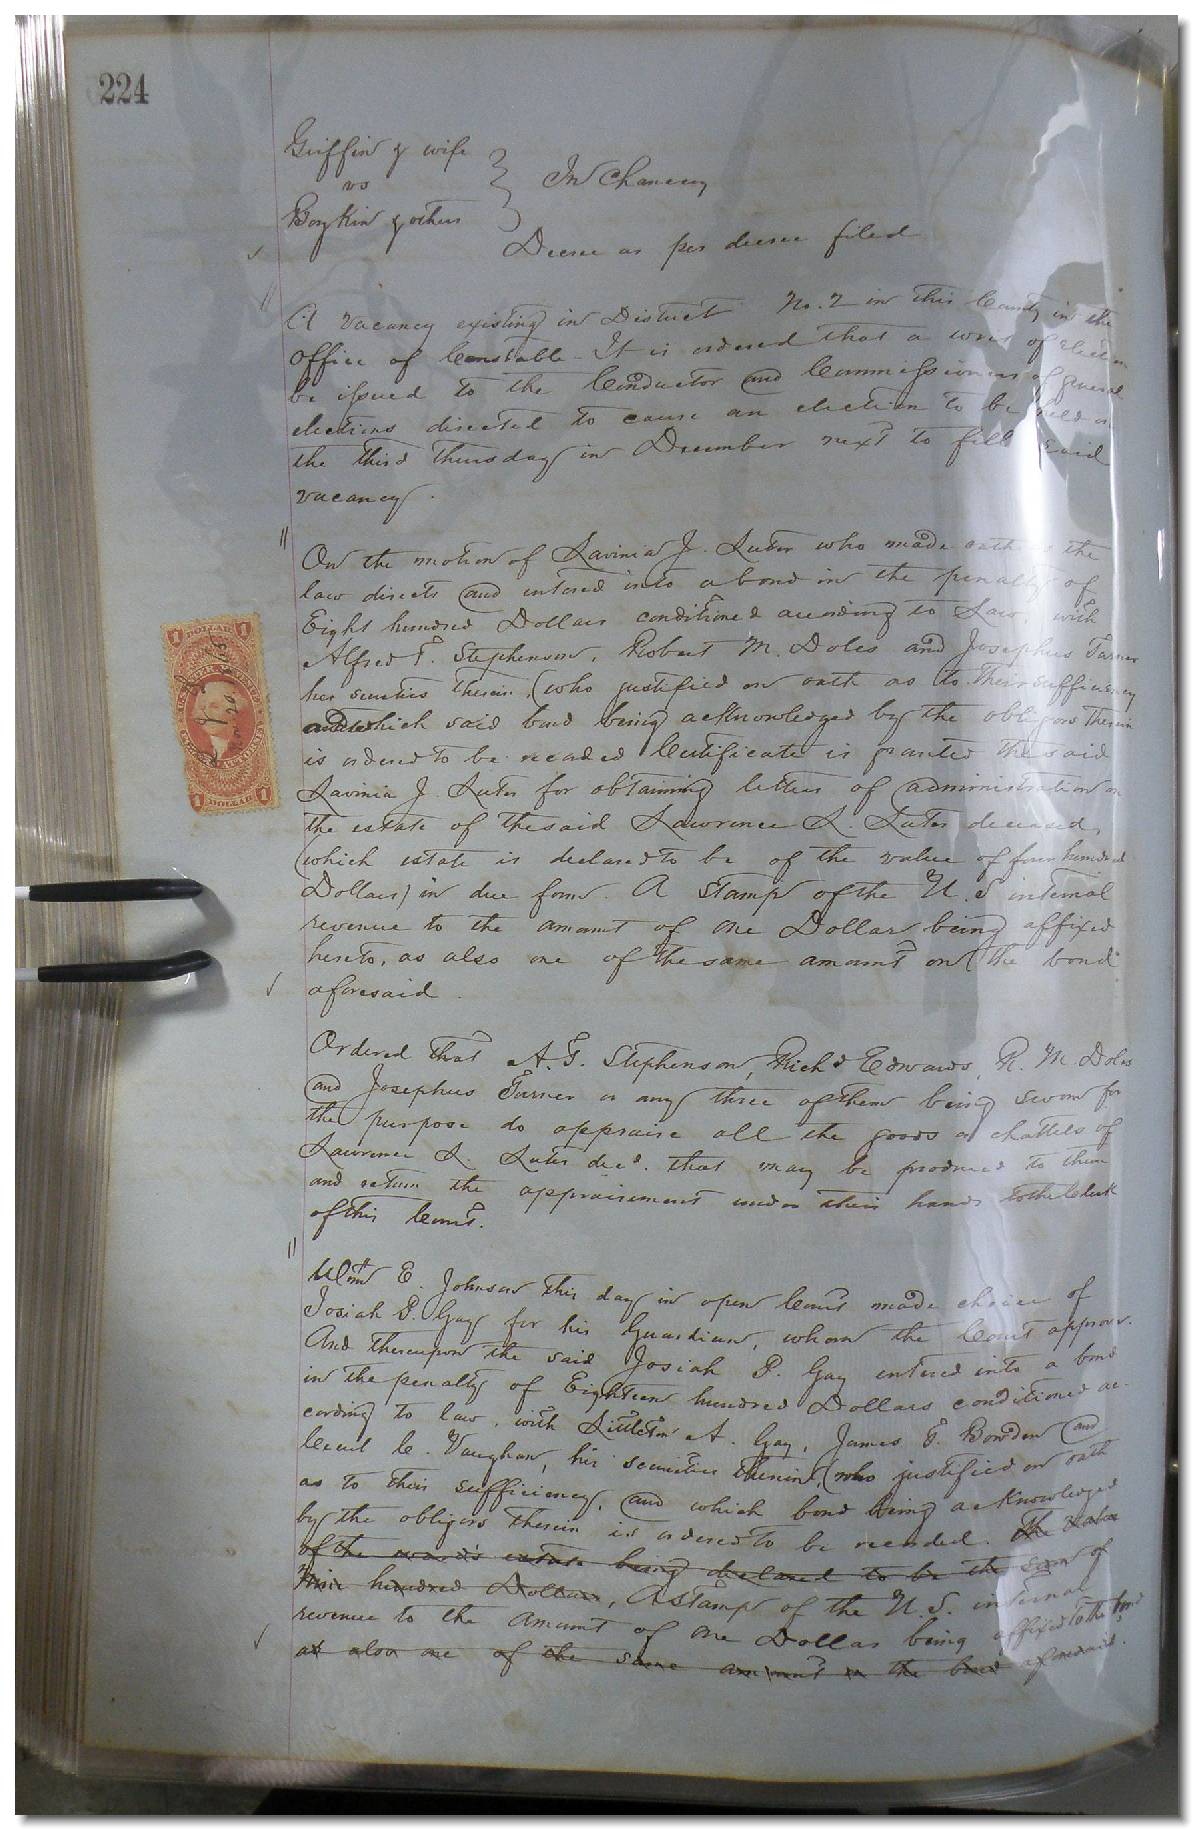 224
Griffin & wife
vs
Boykin & others
In Chancery
Decree as per decree filed
A vacancy existing in District No. 2 in this County in the
office of Constable - It is ordered that a writ of election
be issued to the Conductor and Commissioners of general
elections directed to cause an election to be held on
the third Thursday in December next to fill said
vacancy.
On the motion of Lavinia J. Luter who made oath as the
law directs and entered into a bond in the penalty of
Eight hundred Dollars conditioned according to Law, with
Alfred T. Stephenson, Robert M. Doles and Josephus Turner
her securities therein, (who justified on oath as to their sufficiency
and which said bond being acknowledged by the obligors therein
is ordered to be recorded Certificate is granted the said
Lavinia J. Luter for obtaining letters of administration on
the estate of the said Lawrence L. Luter deceased,
(which estate is declared to be of the value of four hundred
Dollars) in due form. A Stamp of the U. S internal
revenue to the amount of one Dollar being affixed
hereto, as also one of the same amount on the bond
aforesaid.
1 DOLLAR 1
1 DOLLAR 1
Ordered that A. T. Stephenson, Richd Edwards, R. M. Doles
and Josephus Turner or any three of them being sworn for
the purpose do appraise all the goods & chattels of
Lawrence L. Luter decd. that may be produced to them
and return the appraisement under their hands to the Clerk
of this Court.
E. Johnson this day in open Court made choice of
Josiah P. Gay for his Guardian, whom the Court approv.
And thereupon the said Josiah P. Gay entered into a bond
in the penalty of Eighteen hundred Dollars conditioned ac-
cording to law, with Littleton A. Gay, James T. Bowden and
Cecil C. Vaughan, his securities therein, (who justified on oath
as to their sufficiency, and which bond being acknowledged
by the obligors therein is ordered to be recorded. the value
of the ward's estate being declared to be the sum of
Nine hundred Dollars, A Stamp of the U. S. internal
revenue to the amount of one Dollar being affixed to the bond
as also one of the same amount on the bond aforesaid.